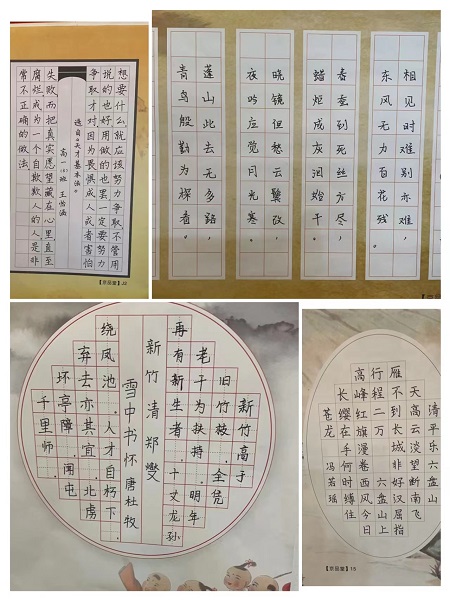 想要什么,就应该努力争取不管用
说的也好用做的也罢一定要努力
争取才对因为畏惧成人或者害怕
选自《天才基本法》
高一(5)班 王怡涵
失败而把真实愿望藏在心里直至
腐烂成为一个自欺欺人的人是非
常不正确的做法
【京品堂】22
相见时难别亦难,
东风无力百花残。
春蚕到死丝方尽,
蜡炬成灰泪始干。
晓镜但愁云鬓改,
夜吟应觉月光寒。
蓬山此去无多路,
青鸟殷勤为探看。
新竹高于
旧竹枝,全凭
老干为扶持。明年
再有新生者,十丈龙孙
新竹清郑燮
雪中书怀唐杜牧
绕凤池。人才自朽下,
弃去亦其宜。北虏
坏亭障,闻屯
千里师。
清平乐六盘山
天高云淡望断南飞
雁不到长城非好汉屈指
行程二万六盘山上
高峰红旗漫卷西风今日
长缨在手何时缚住
苍龙 冯若瑶
【京品堂】19